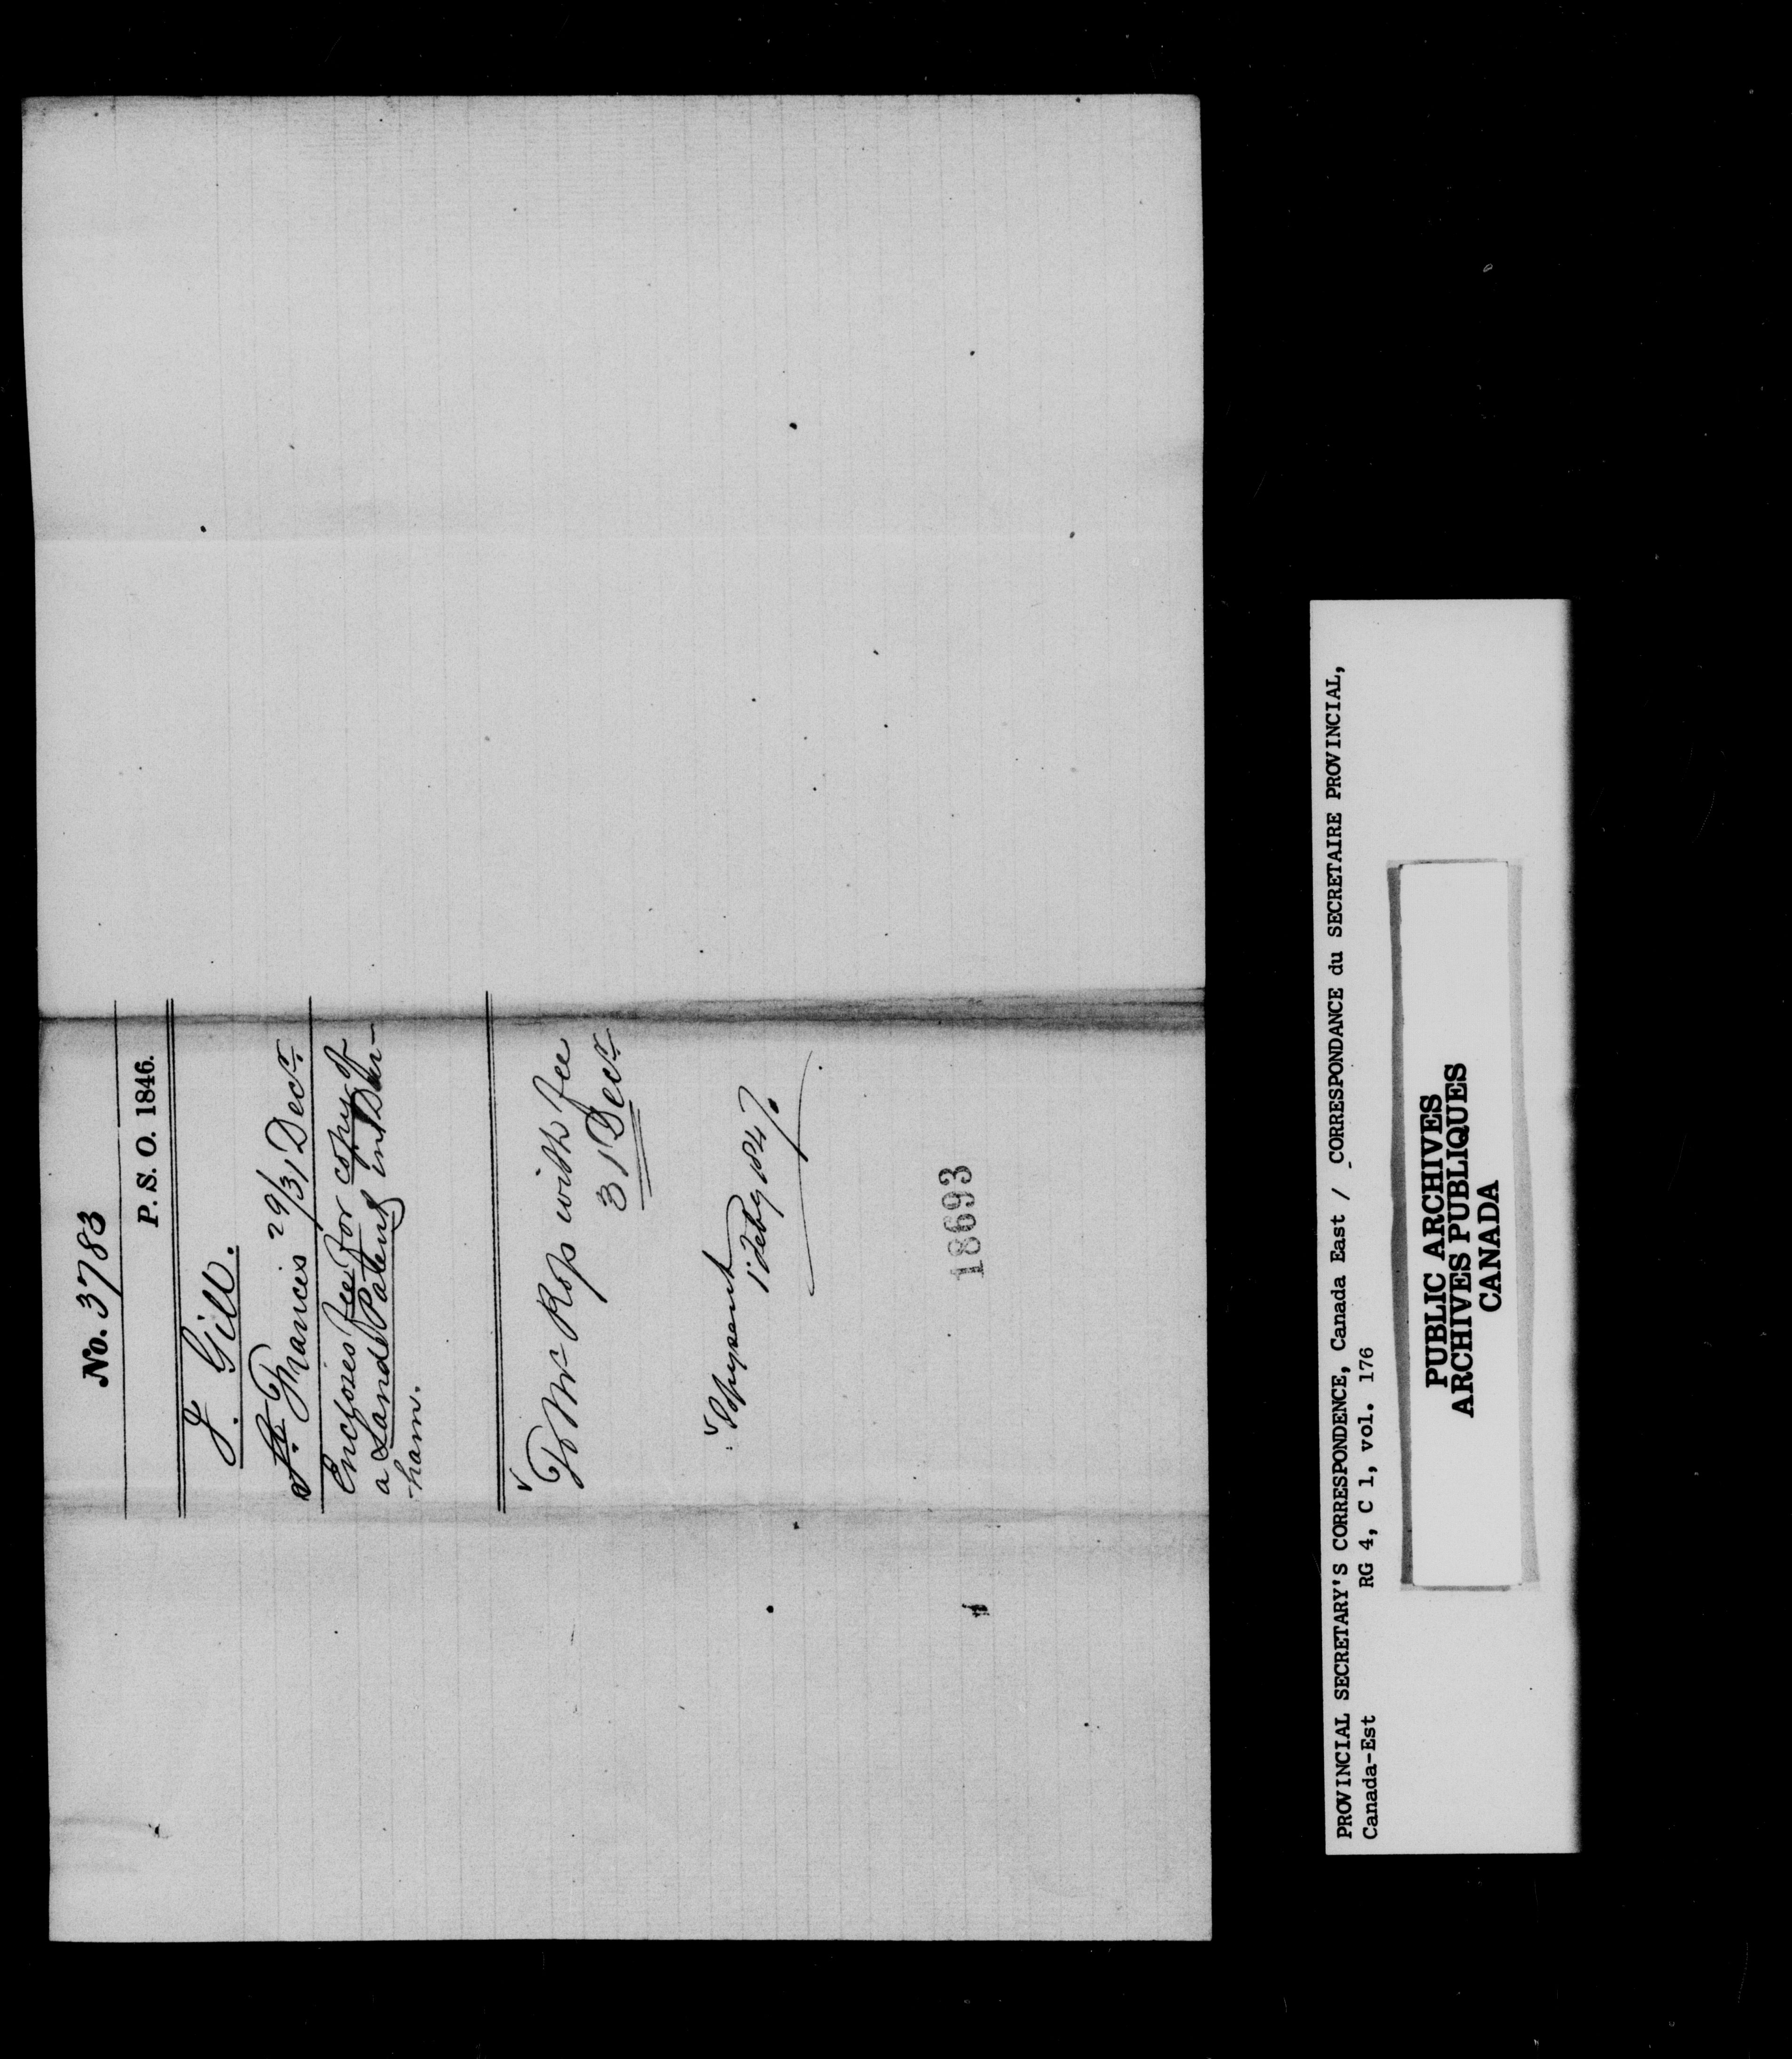 No. 3783
P. S. O. 1846.
J. Gill.
St. Francis 29/31 Decr.
Encloses fee for copy of
a Lands Patent in Dur-
-ham.
To Mr Ross with fee
31 Decr.
Copy sent
1 Feby 1847.
18693
PROVINCIAL SECRETARY'S CORRESPONDENCE, Canada East / CORRESPONDANCE du SECRETAIRE PROVINCIAL,
Canada-Est RG 4, C 1, vol. 176
PUBLIC ARCHIVES
ARCHIVES PUBLIQUES
CANADA